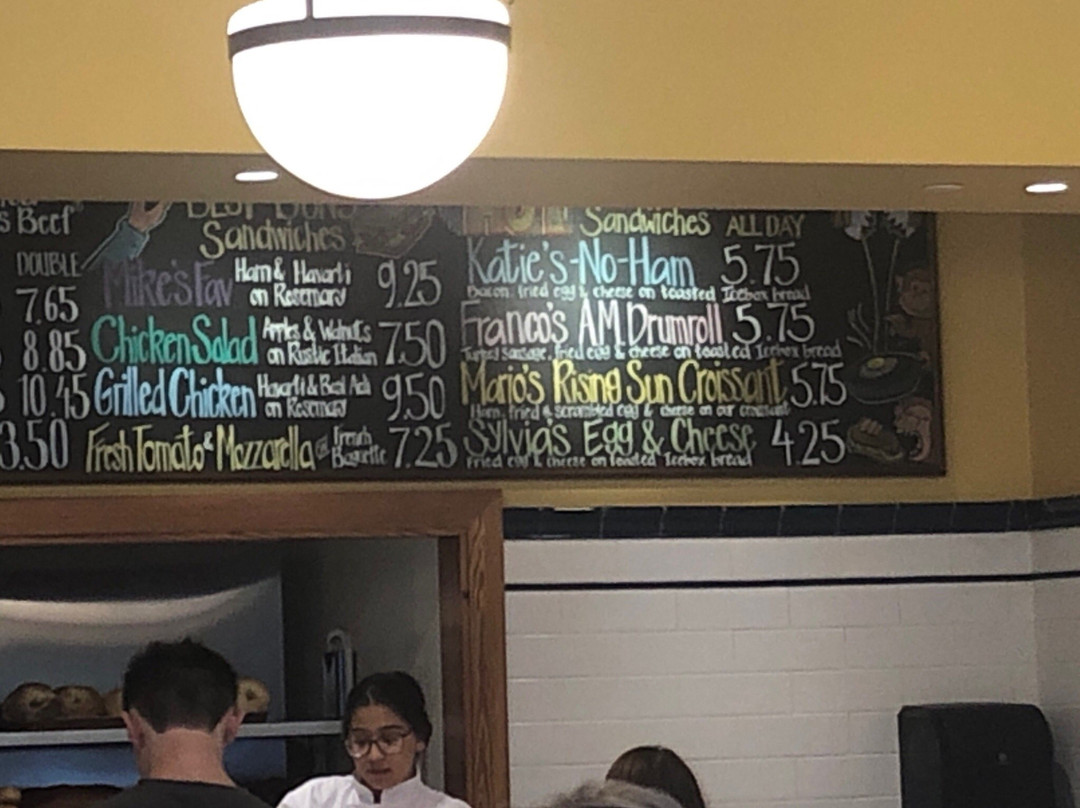 s Beef
DOUBLE
7.65
8.85
10.45
3.50
BEST BUNS
Sandwiches
Mike's Fav Ham & Havarti on Rosemary 9.25
Chicken Salad Apples & Walnuts on Rustic Italian 7.50
Grilled Chicken Havarti & Basil Aioli on Rosemary 9.50
Fresh Tomato & Mozzarella French Baguette 7.25
Sandwiches ALL DAY
Katie's-No-Ham 5.75
Bacon, fried egg & cheese on toasted Icebox bread
Franco's A.M. Drumroll 5.75
Turkey sausage, fried egg & cheese on toasted Icebox bread
Mario's Rising Sun Croissant 5.75
Ham, fried & scrambled egg & cheese on our croissant
Sylvia's Egg & Cheese 4.25
Fried egg & cheese on toasted Icebox bread